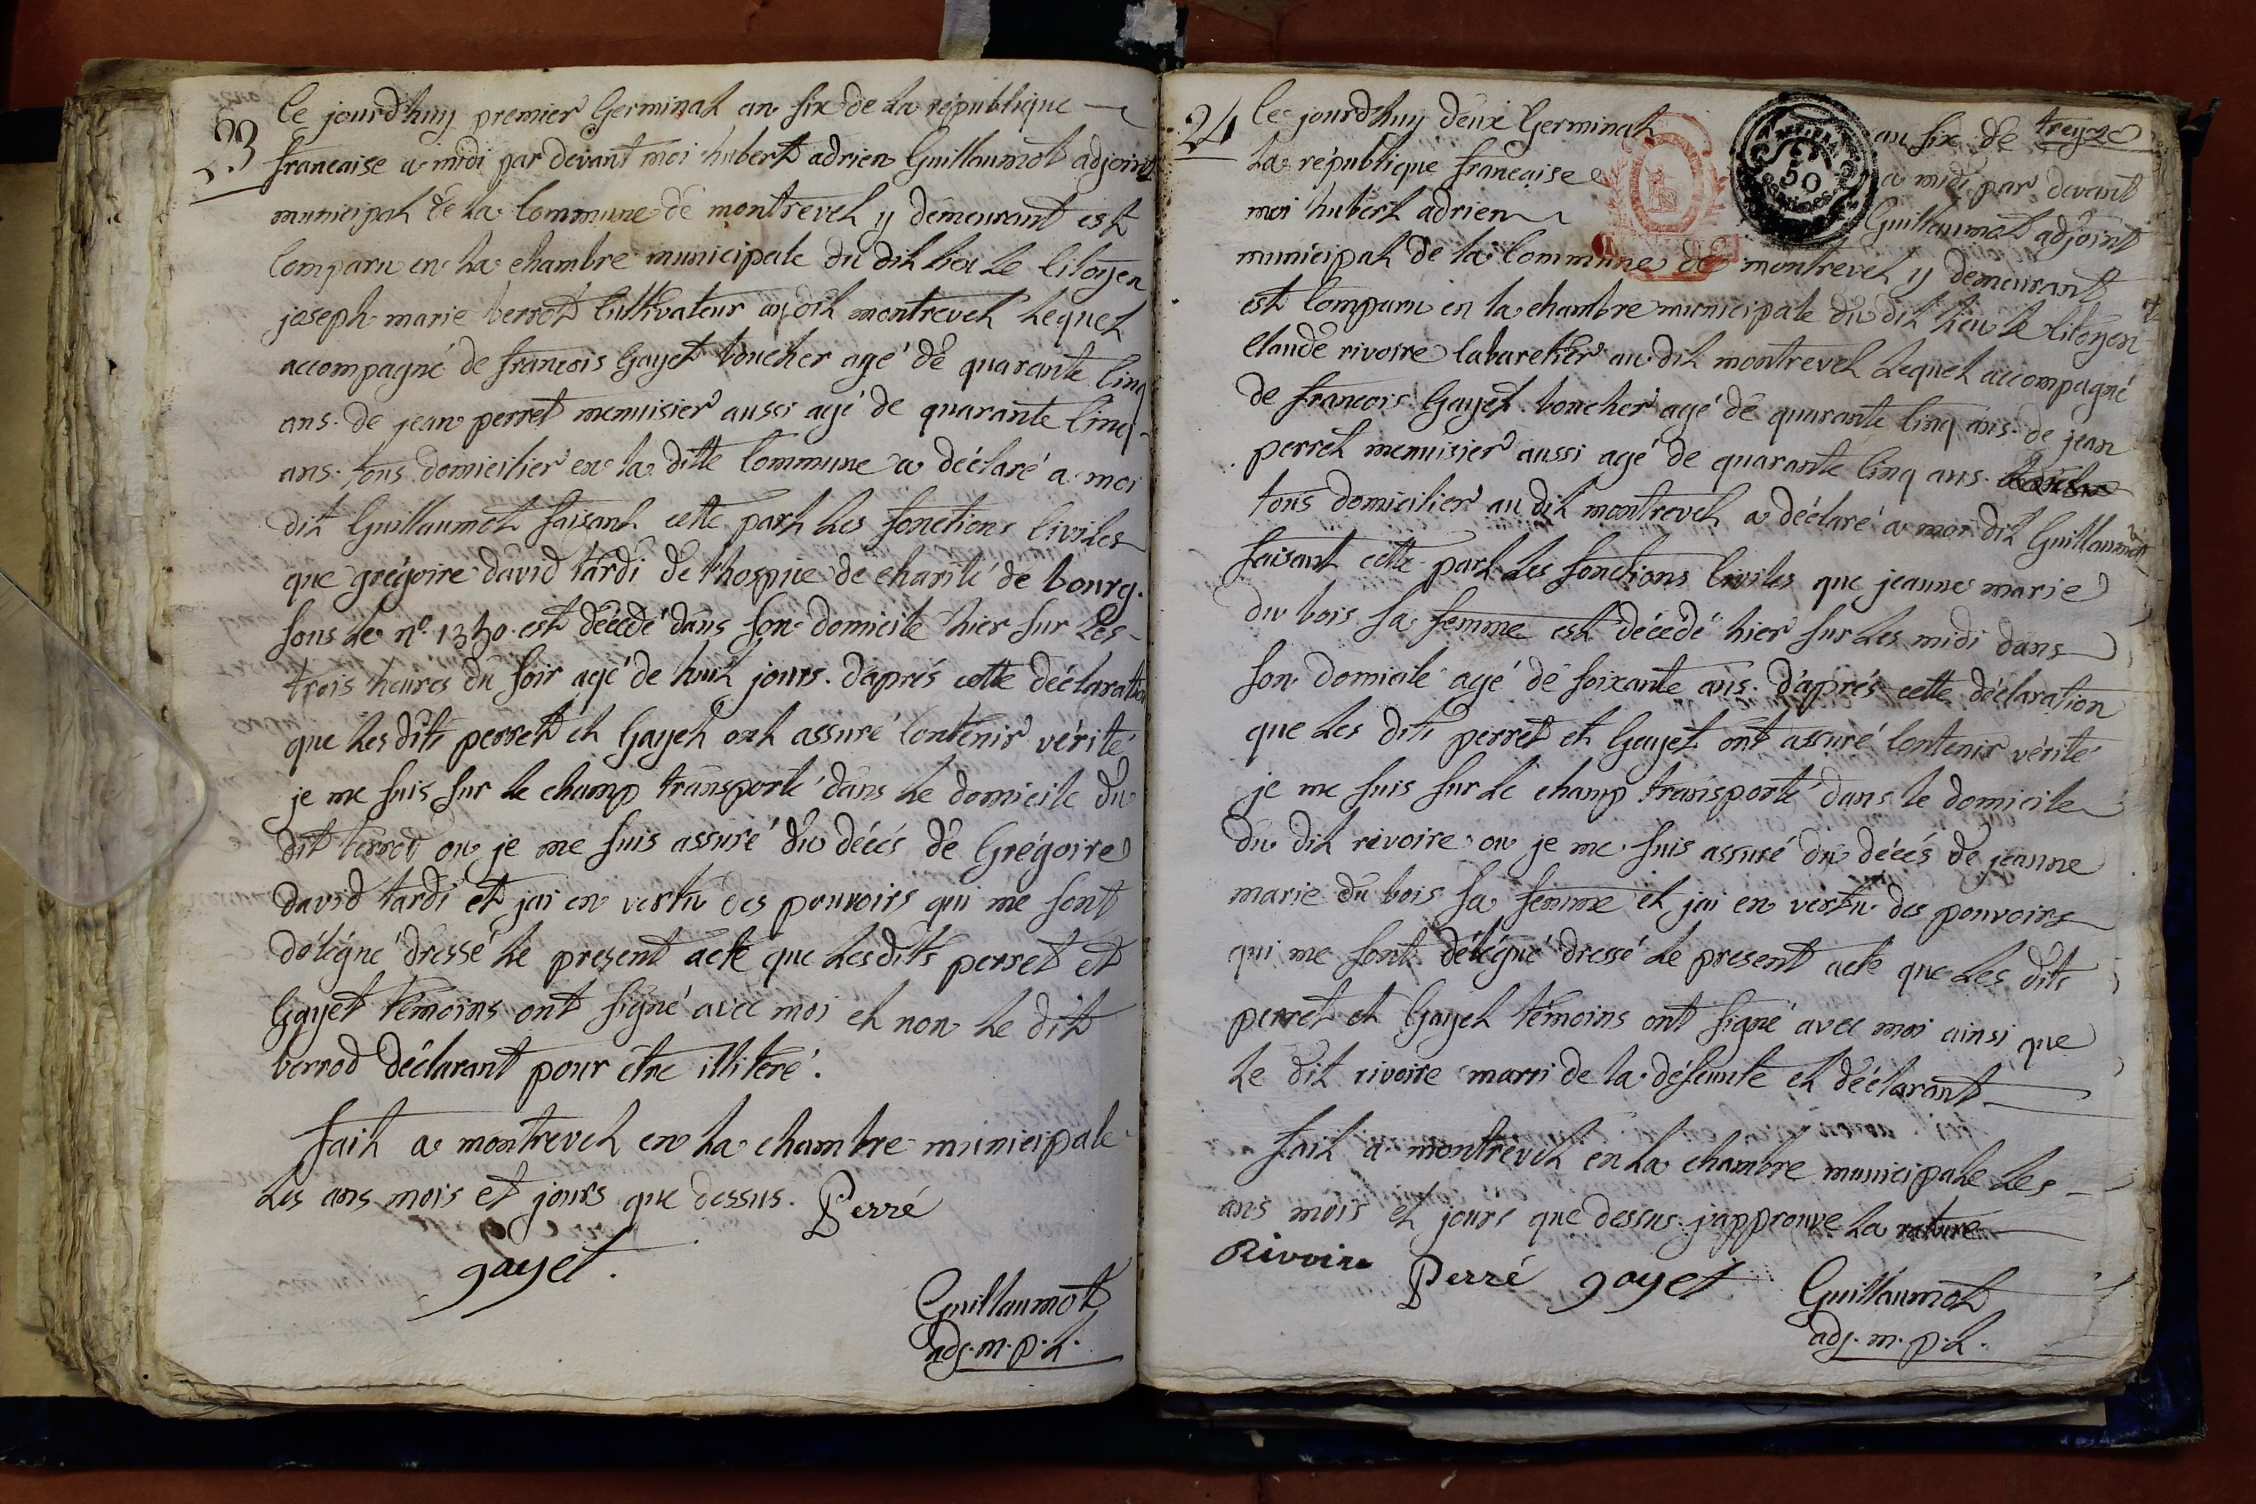 23
Ce jourd'huy premier Germinal an six de la république
francaise a midi par devant moi hubert adrien Guillaumot adjoint
municipal de la Commune de montrevel y demeurant est
Comparu en la chambre municipale du dit lieu le Citoyen
joseph marie verrod Cultivateur au dit montrevel lequel
accompagné de francois Gayet boucher agé de quarante Cinq
ans. de jean perret menuisier aussi agé de quarante Cinq
ans. tous domicilier en la ditte Commune a déclaré a moi
dit Guillaumot faisant cette part les fonctions Civiles
que grégoire david tardi de l'hospice de charité de bourg.
sous le n.º 1340. est décédé dans son domicile hier sur les
trois heures du soir agé de huit jours. d'aprés cette déclaration
que les dits perret et Gayet ont assuré Contenir vérité
je me suis sur le champ transporté dans le domicile du
dit verrod ou je me suis assuré du décés de Grégoire
david tardi et jai en vertu des pouvoirs qui me sont
délégué dressé le present acte que lesdits perret et
Gayet témoins ont signé avec moi et non le dit
verrod déclarant pour être illiteré.
fait a montrevel en la chambre municipale
les ans mois et jours que dessus. Perré
gayet.
Guillaumot
adj. m. p. l.
treize
24
Ce jourd'huy deux Germinal an six de
la république francaise a midi par devant
moi hubert adrien Guillaumot adjoint
50
CENTIMES
municipal de la Commune de montrevel y demeurant
est Comparu en la chambre municipale du dit lieu le Citoyen
Claude rivoire Cabaretier au dit montrevel lequel accompagné
de francois Gayet boucher agé de quarante Cinq ans. de jean
perret menuisier aussi agé de quarante Cinq ans.
tous domicilier au dit montrevel a déclaré a moi dit Guillaumot
faisant cette part les fonctions Civiles que jeanne marie
du bois sa femme est décédé hier sur les midi dans
son domicile agé de soixante ans. d'aprés cette déclaration
que les dits perret et Gayet ont assuré Contenir vérité
je me suis sur le champ transporté dans le domicile
du dit rivoire ou je me suis assuré du décés de jeanne
marie du bois sa femme et jai en vertu des pouvoirs
qui me sont délégué dressé le present acte que les dits
perret et Gayet témoins ont signé avec moi ainsi que
le dit rivoire marri de la défeunte et déclarant
fait a montrevel en la chambre municipale les
ans mois et jours que dessus. j'approuve la rature
Rivoire Perré gayet Guillaumot
adj. m. p. l.